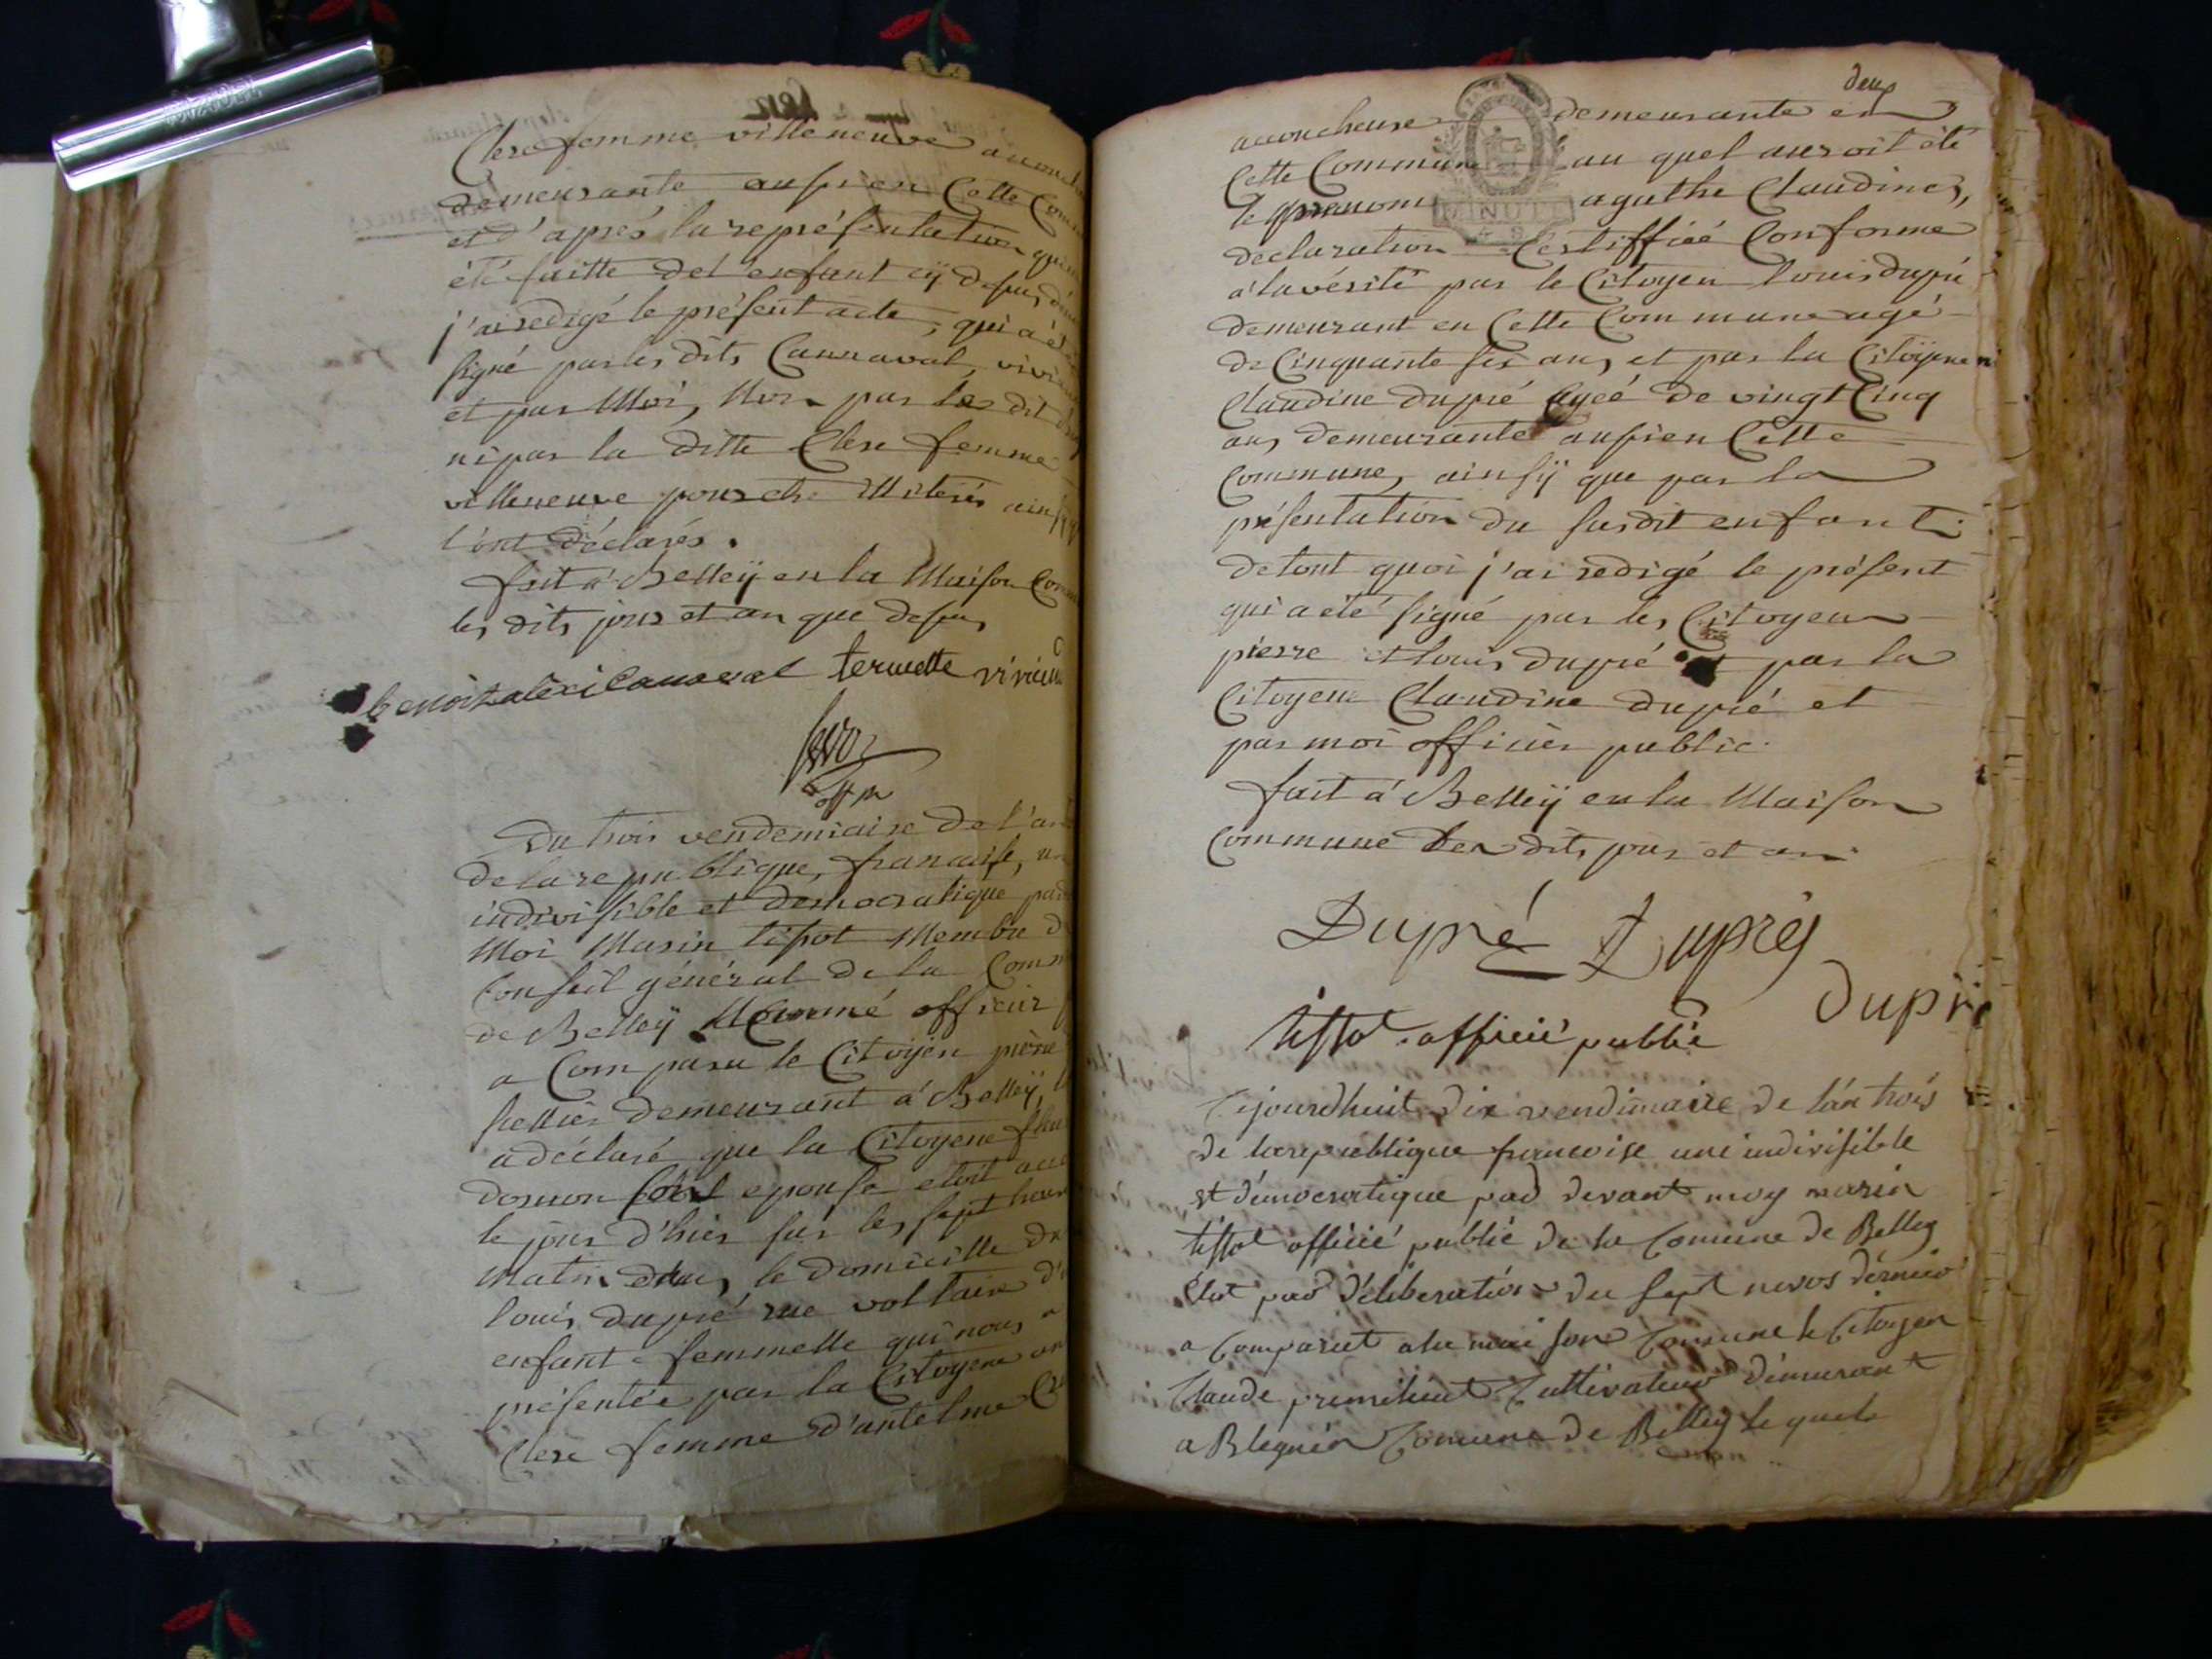 Clere femme villeneuve accouch
demeurante aussi en Cette Com
et d'après la représentation qui
été faitte del'enfant cÿ dessus
j'ai redigé le présent acte, qui a été
signé par les dits Cannaval, vivi
et par Moi, Non par les dit
ni par la ditte Clere femme
villeneuve pour etre illiterés ainsÿ
l'ont déclarés.
fait à Belleÿ en la Maison Com
les dits jour et an que dessus
benoit alexi Canaval termette vivien
off p
Du trois vendemiaire De l'an
De la republique, francaise, un
indivisible et démocratique par
Moi Marin tissot Membre D
Conseil général De la Com
de Belleÿ Nommé officier
a Comparu le Citoÿen pierre
sellier demeurant à Belleÿ,
a déclaré que la Citoyene
dornon son epouse etoit acc
le jour d'hier sur les sept heur
Matin dans le domicille De
louis dupré rue voltaire d'
enfant femmelle qui nous a
présentée par la Citoyene
Clere femme D'antelme
deux
accoucheuse demeurante en
Cette Commune au quel auroit été
le prenom agathe Claudine,
declaration Certiffiée Conforme
à la vérité par le Citoyen louis dupré
demeurant en Cette Commune agé
de Cinquante six ans, et par la Citoÿene
Claudine dupré agée De vingt Cinq
ans, demeurante aussi en Cette
Commune, ainsÿ que par la
présentation Du susdit enfant
de tout quoi j'ai redigé le présent
qui a été signé par les Citoyen
pierre et louis dupré et par la
Citoyene Claudine dupré et
par moi officier public.
fait à Belleÿ en la Maison
Commune les dits jour et an
Dupré Dupré
dupré
tissot officié publié
Cejourdhuit dix vendimaire de l'an trois
de larepublique francoise une indivisible
et démocratique pad devant moy marin
tissot officié publié de la Comune de Belley
élut pad déliberation du sept nivos dérnier
a Comparut a la maison Comune le Citoyen
Claude premilieut Cultivateur démurant
a Blegnién Comune de Belley le quel